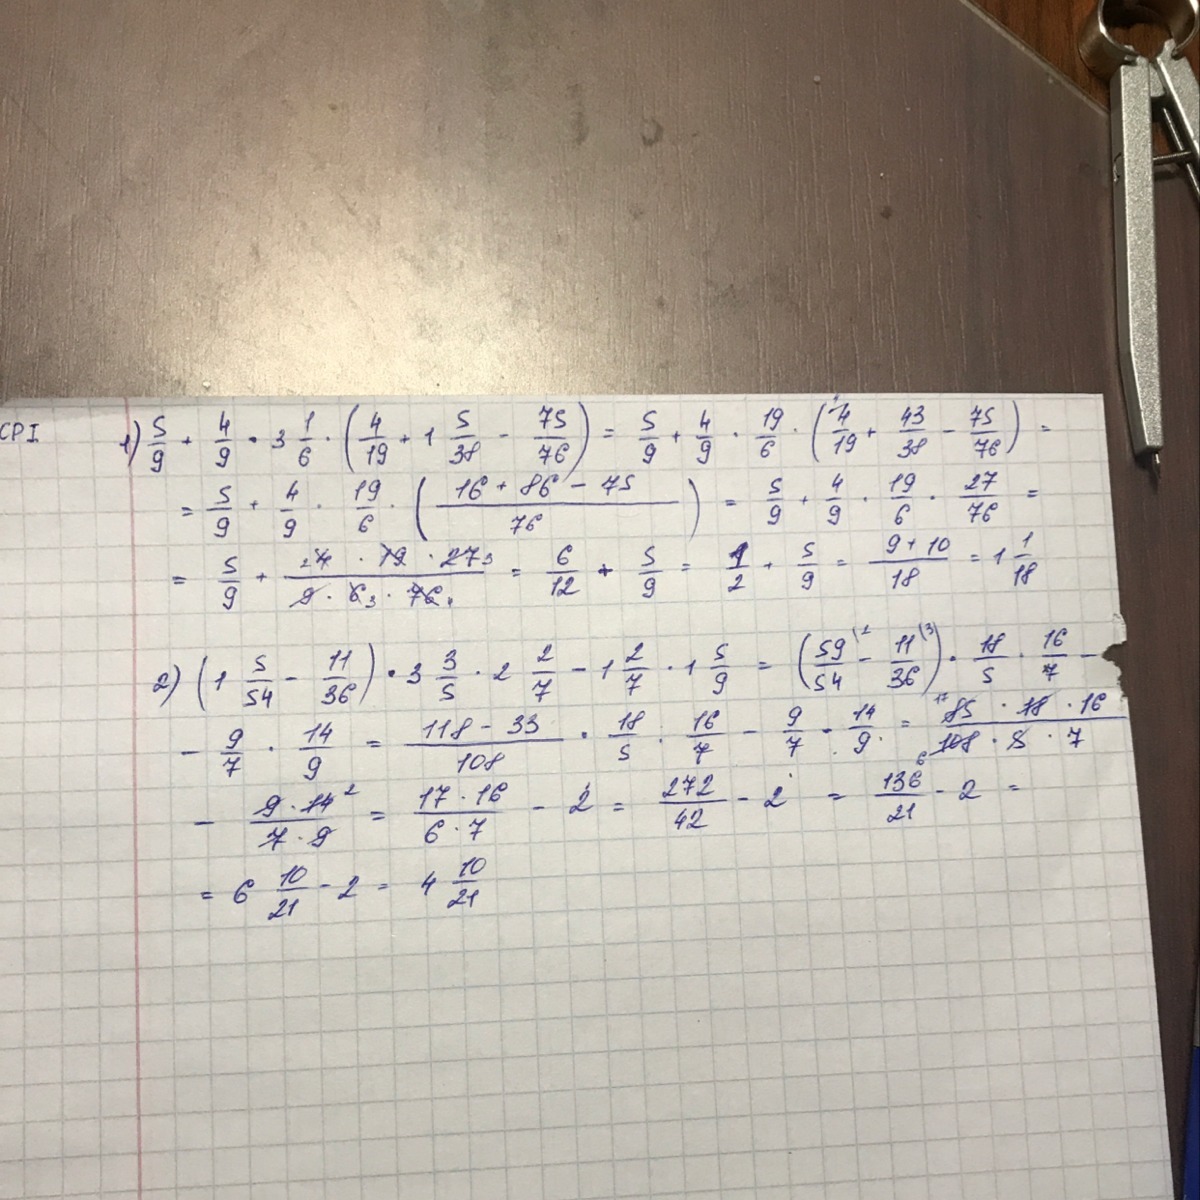 CPI
1) 5/9 + 4/9 · 3 1/6 · (4/19 + 1 5/38 - 75/76) = 5/9 + 4/9 · 19/6 · (4/19 + 43/38 - 75/76) =
= 5/9 + 4/9 · 19/6 · ((16 + 86 - 75)/76) = 5/9 + 4/9 · 19/6 · 27/76 =
= 5/9 + (4 · 19 · 27 3)/(9 · 6 3 · 76 4) = 6/12 + 5/9 = 1/2 + 5/9 = (9 + 10)/18 = 1 1/18
2) (1 5/54 - 11/36) · 3 3/5 · 2 2/7 - 1 2/7 · 1 5/9 = (59/54 (2 - 11/36 (3) · 18/5 · 16/7 -
- 9/7 · 14/9 = (118 - 33)/108 · 18/5 · 16/7 - 9/7 · 14/9 = (17 85 · 18 · 16)/(6 108 · 5 · 7)
- (9 · 14 2)/(7 · 9) = (17 · 16)/(6 · 7) - 2 = 272/42 - 2 = 136/21 - 2 =
= 6 10/21 - 2 = 4 10/21